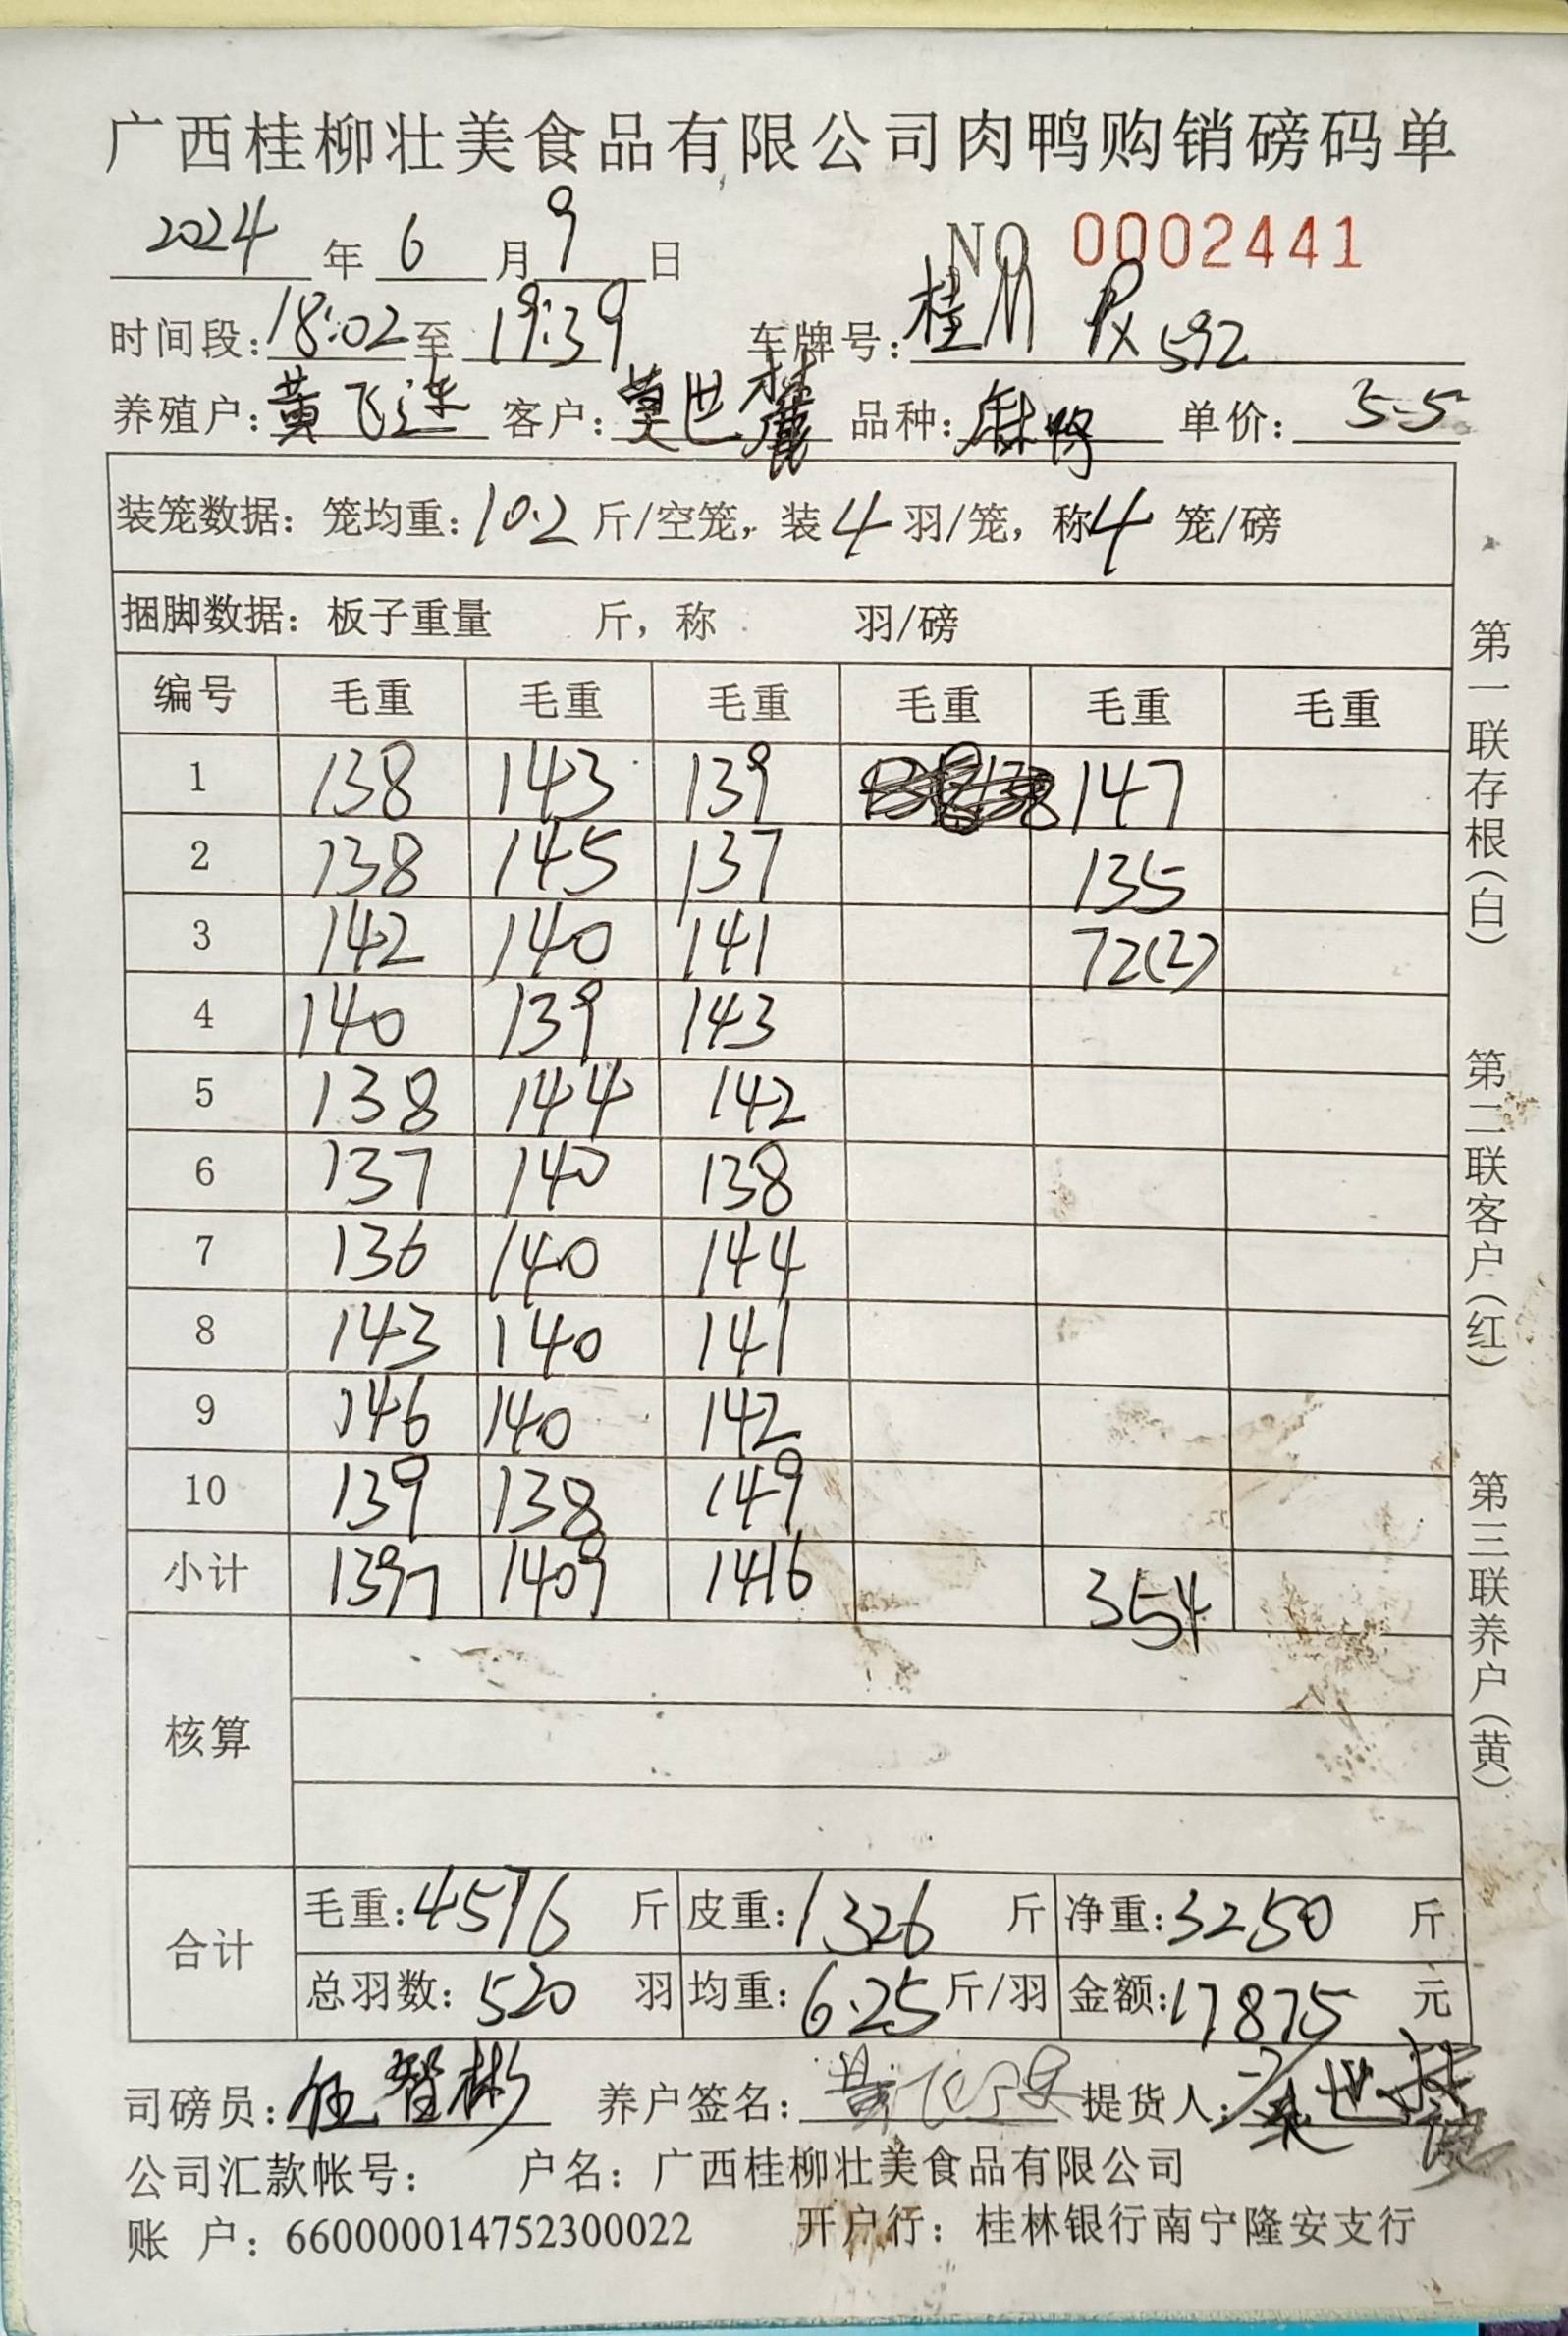 广西桂柳壮美食品有限公司肉鸭购销磅码单
2024 年 6 月 9 日 NO 0002441
时间段:18:02至19:39 车牌号:桂 PX592
养殖户:黄飞连 客户:莫世 品种: 单价:5.5
装笼数据: 笼均重:10.2 斤/空笼, 装 4 羽/笼, 称 4 笼/磅
捆脚数据: 板子重量 斤, 称 羽/磅
编号 毛重 毛重 毛重 毛重 毛重 毛重
1 138 143 139 147
2 138 145 137 135
3 142 140 141 72(2)
4 140 139 143
5 138 144 142
6 137 140 138
7 136 140 144
8 143 140 141
9 146 140 142
10 139 138 149
小计 1397 1409 1416 354
核算
合计
毛重:4576 斤 皮重:1326 斤 净重:3250 斤
总羽数:520 羽 均重:6.25斤/羽 金额:17875 元
司磅员:伍智彬 养户签名: 提货人:
公司汇款帐号: 户名: 广西桂柳壮美食品有限公司
账 户: 660000014752300022 开户行: 桂林银行南宁隆安支行
第一联存根(白) 第二联客户(红) 第三联养户(黄)